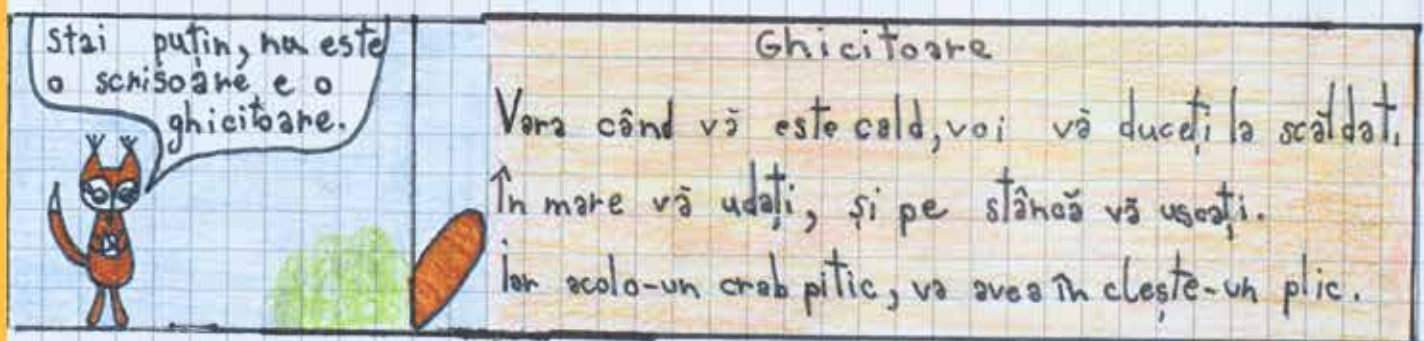 Stai puțin, nu este
o scrisoare e o
ghicitoare.
Ghicitoare
Vara când vă este cald, voi vă duceți la scăldat,
În mare vă udați, și pe stâncă vă uscați.
Iar acolo-un crab pitic, va avea în clește-un plic.